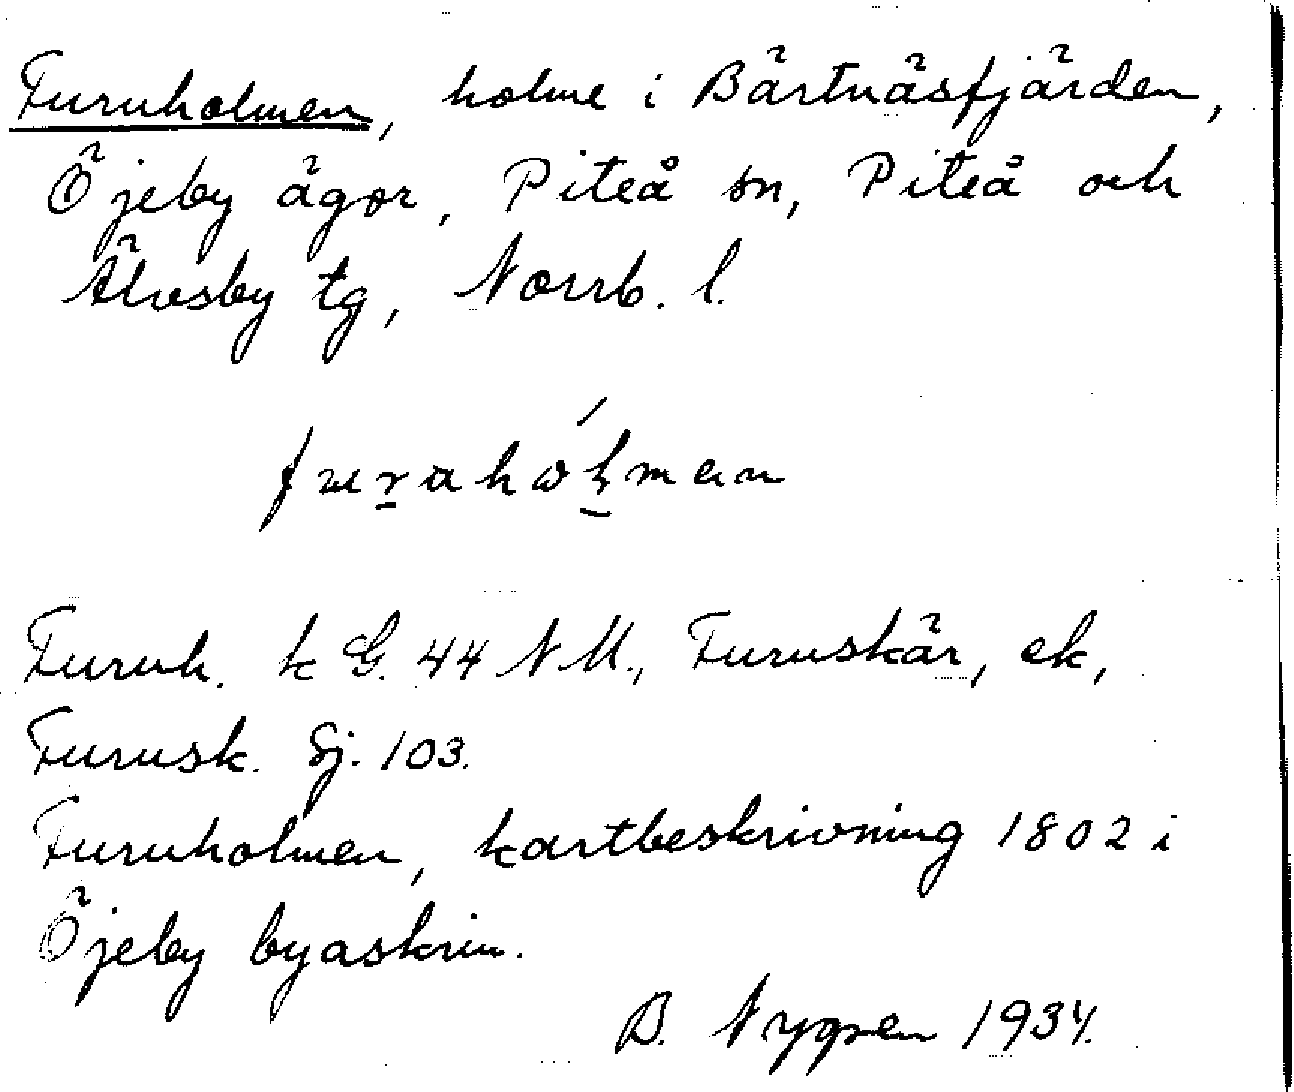 Furuholmen, holme i Bärtnäsfjärden,
Öjeby ägor, Piteå sn, Piteå och
Älvsby tg, Norrb. l.
Furuh. k G. 44 NM., Furuskär, ek,
Furusk. Sj. 103.
Furuholmen, kartbeskrivning 1802 i
Öjeby byaskrin.
B. Nygren 1934.